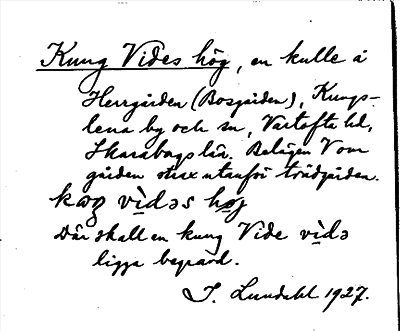 Kung Vides hög, en kulle å
Herrgården (Bosgården), Kungs-
lena by och sn, Vartofta hd,
Skarabogs län. Belägen V om
gården strax utanför trädgården.
kɷŋ vìdəs høj
Där skall en kung Vide vìdə
ligga begravd.
I. Lundahl 1927.